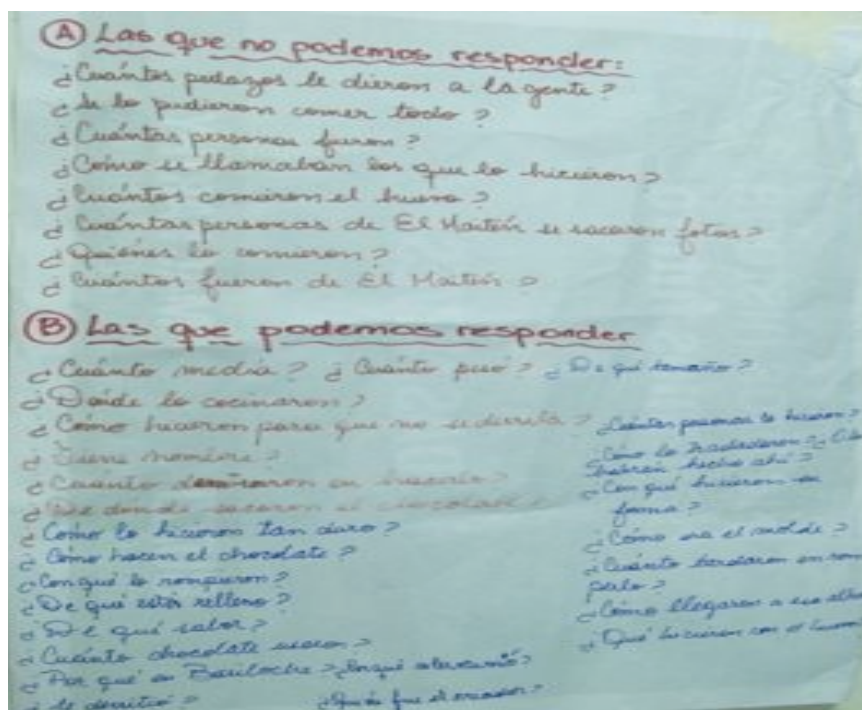 Ⓐ Las que no podemos responder:
¿Cuántos pedazos le dieron a la gente?
¿Se lo pudieron comer todo?
¿Cuántas personas fueron?
¿Cómo se llamaban los que lo hicieron?
¿Cuántos comieron el huevo?
¿Cuántas personas de El Maitén se sacaron fotos?
¿Quiénes lo comieron?
¿Cuántos fueron de El Maitén?
Ⓑ Las que podemos responder
¿Cuánto medía? ¿Cuánto pesó? ¿De qué tamaño?
¿Dónde lo cocinaron?
¿Cómo hicieron para que no se derrita?
¿Tiene nombre?
¿Cuánto demoraron en hacerlo?
¿De dónde sacaron el chocolate?
¿Cómo lo hicieron tan duro?
¿Cómo hacen el chocolate?
¿Con qué lo rompieron?
¿De qué está relleno?
¿De qué sabor?
¿Cuánto chocolate usaron?
¿Por qué en Bariloche?
¿Se derritió?
¿Quién fue el creador?
¿Cuántas personas lo hicieron?
¿Cómo lo trasladaron?
habrán hecho ahí?
¿Con qué hicieron su
forma?
¿Cómo era el molde?
¿Cuánto tardaron en rom
perlo?
¿Cómo llegaron a esa altu
¿Qué hicieron con el huevo